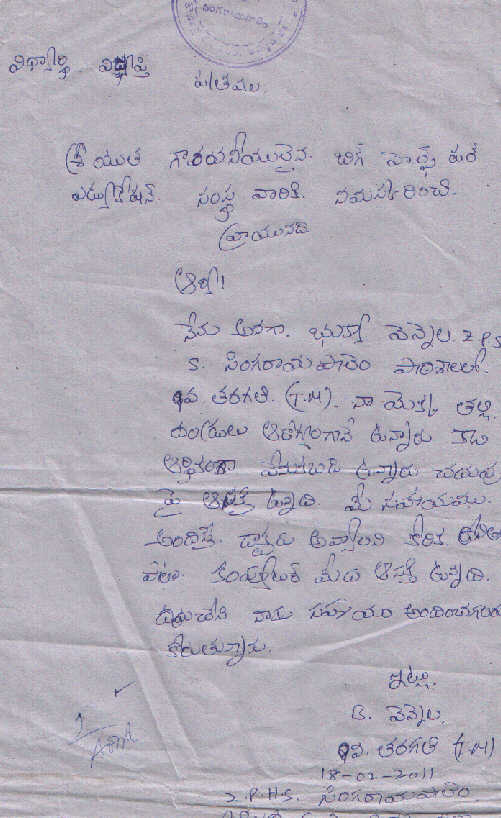 విద్యార్థి విజ్ఞప్తి
పత్రము.
శ్రీయుత గౌరవనీయులైన బిగ్ హెల్ప్ ఫర్
ఎడ్యుకేషన్. సంస్థ వారికి. నమస్కరించి.
వ్రాయునది
ఆర్యా!
నేను అనగా. భుక్యా వెన్నెల. Z P S
S. సింగరాయపాలెం పాఠశాలలో.
9వ తరగతి. (T.M). నా యొక్క తల్లి
దండ్రులు ఆరోగ్యంగానే ఉన్నారు కాని
ఆర్థికంగా వెనుకబడి ఉన్నారు చదువు
పై ఆసక్తి ఉన్నది. మీ సహాయము.
అందిస్తే. డాక్టరు అవ్వాలని కోరిక
కంప్యూటర్ మీద ఆసక్తి ఉన్నది.
నాకు సహాయం అందించగలరు
కోరుతున్నాను.
ఇట్లు
B. వెన్నెల.
9వ. తరగతి (T.M)
18-02-2011
Z.P.H.S. సింగరాయపాలెం